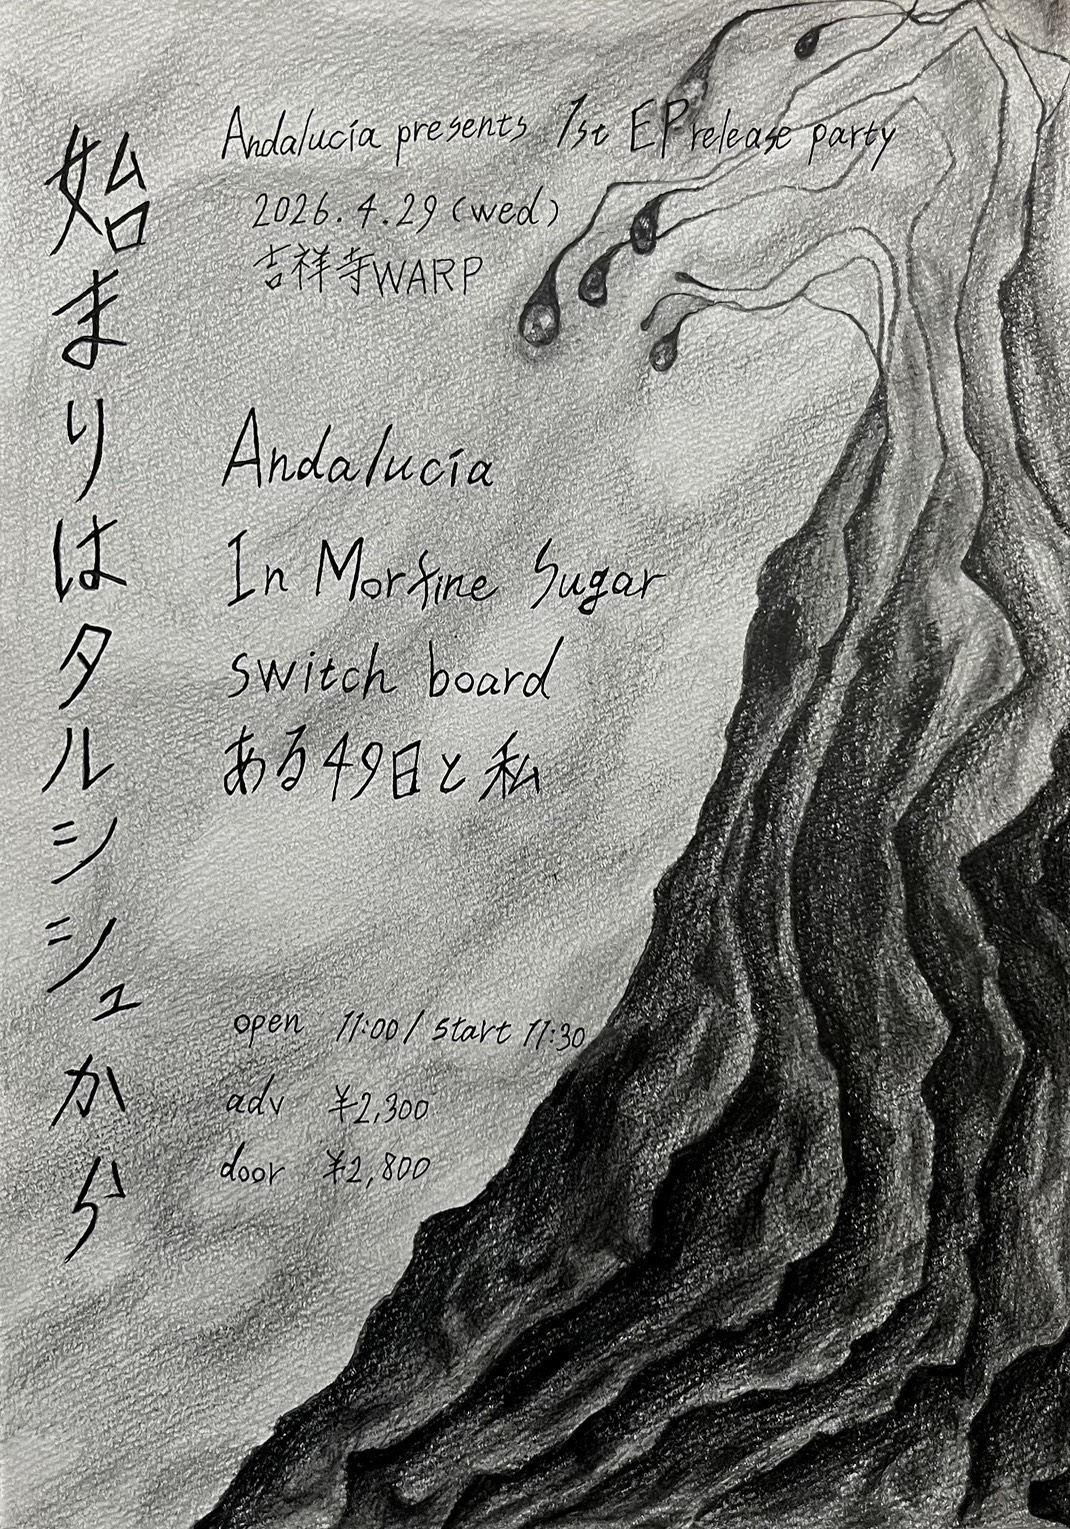 始まりはタルシシュから
Andalucía presents 1st EP release party
2026.4.29(wed)
吉祥寺WARP
Andalucía
In Morfine Sugar
switch board
ある49日と私
open 11:00/start 11:30
adv ¥2,300
door ¥2,800